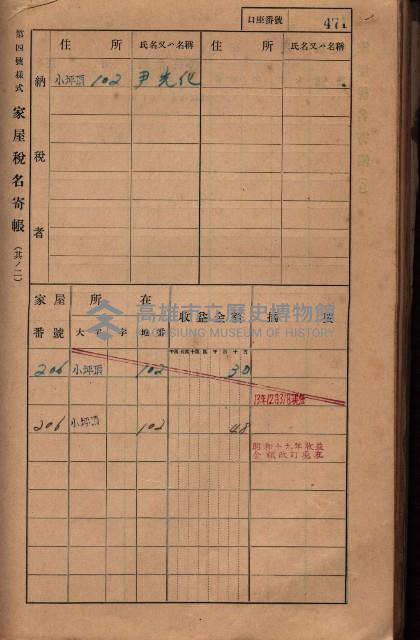 口座番號 471
第四號樣式
家屋稅名寄帳（其ノ二）
住所 氏名又ハ名稱 住所 氏名又ハ名稱
納稅者
小坪頂 102 尹先化
家屋番號 所在 收益金額 摘要
大字 字 地番
206 小坪頂 102 30
13年12月31日現在
206 小坪頂 102 48
昭和十九年收益
金額改訂現在
高雄市立歷史博物館
KAOHSIUNG MUSEUM OF HISTORY